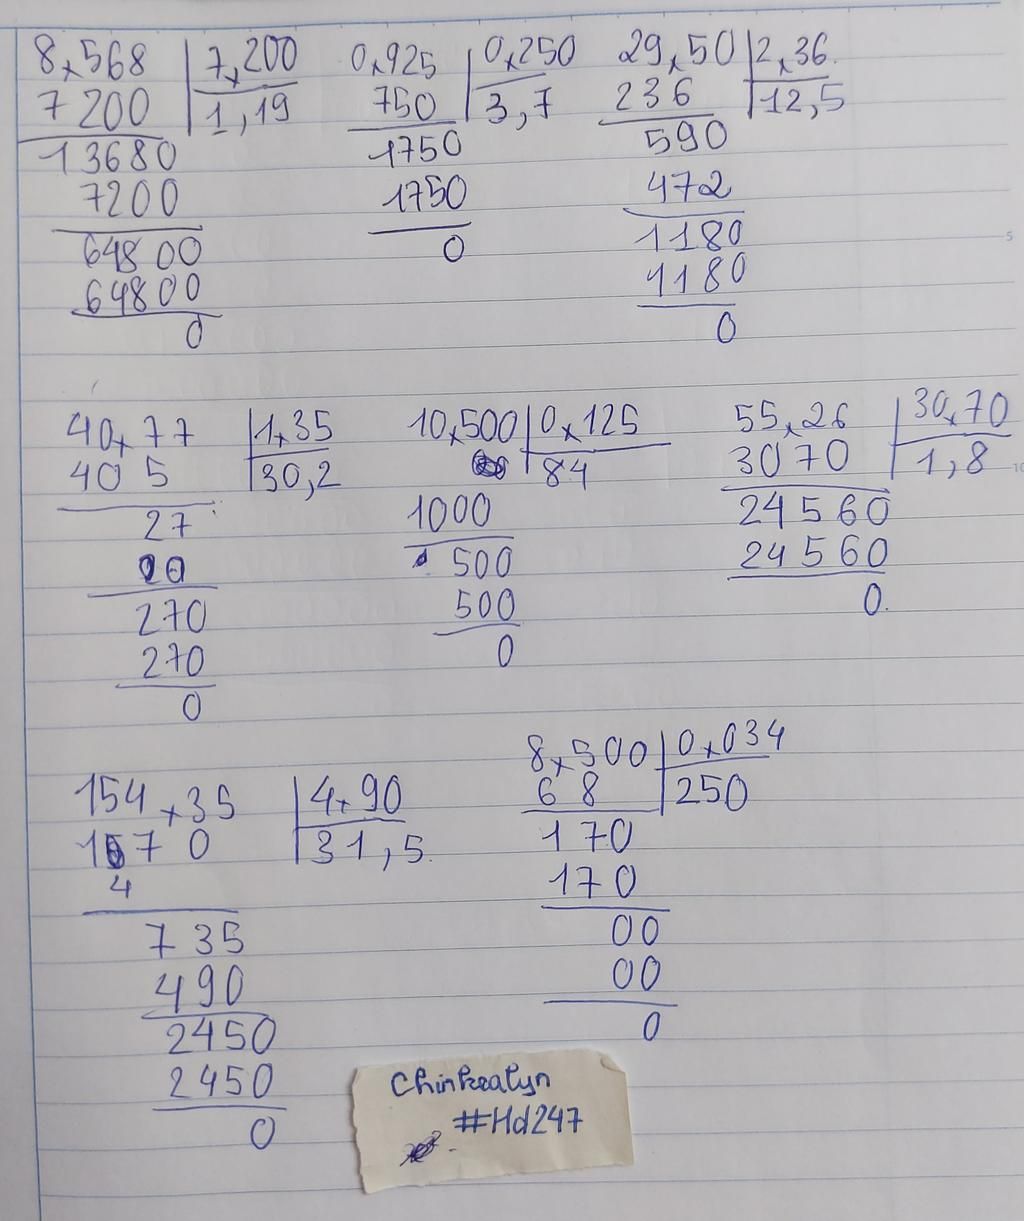 8,568 7,200
7200 1,19
13680
7200
64800
64800
0
0,925 0,250
750 3,7
1750
1750
0
29,50 2,36
236 12,5
590
472
1180
1180
0
40,77 1,35
40 5 30,2
27
00
270
270
0
10,500 0,125
84
1000
500
500
0
55,26 30,70
3070 1,8
24560
24560
0
154,35 4,90
1570 31,5
4
735
490
2450
2450
0
8,500 0,034
68 250
170
170
00
00
0
5
10
Chinkealyn
#Hd247